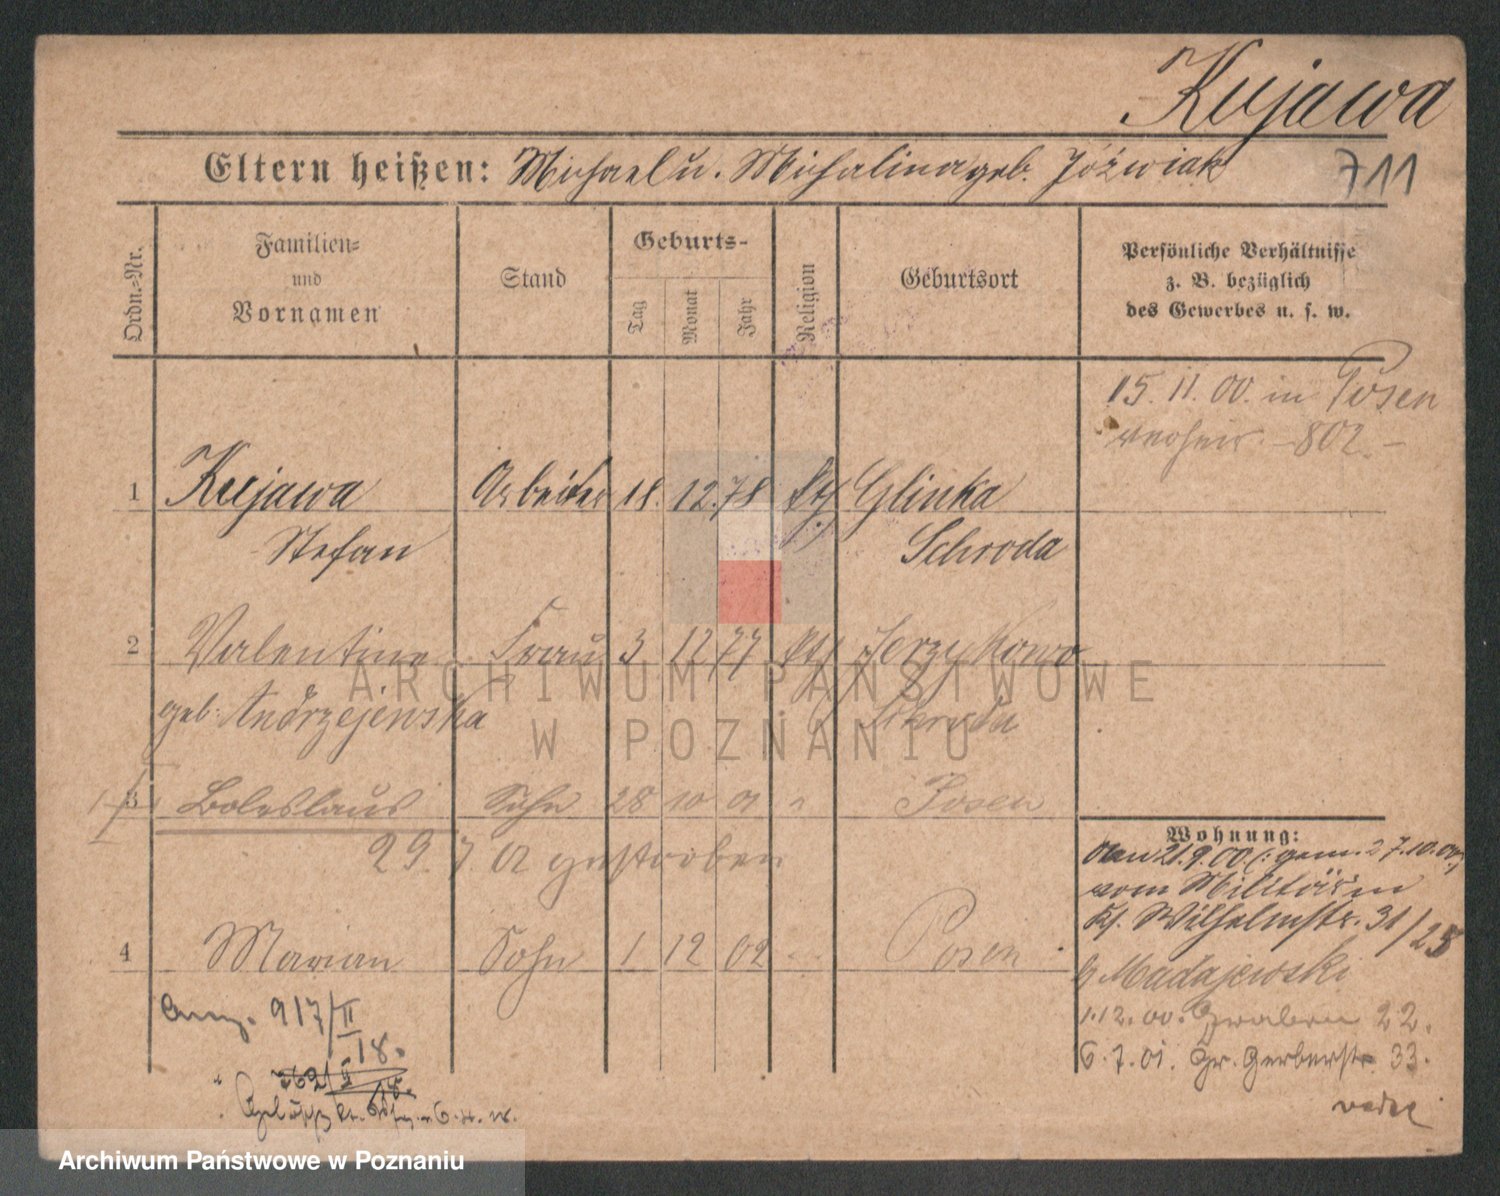 Kujawa
Eltern heißen: Michael u. Michalina geb. Jóźwiak
711
Ordn.-Nr.
Familien-
und
Vornamen
Stand
Geburts-
Tag
Monat
Jahr
Religion
Geburtsort
Persönliche Verhältnisse
z. B. bezüglich
des Gewerbes u. s. w.
15. 11. 00. in Posen
verheir. – 802. –
1 Kujawa Arbeiter 18. 12. 78 kth Glinka
Stefan Schroda
2 Valentine Frau 3 12 77 kth Jerzykowo
geb. Andrzejewska Schroda
3 Boleslaus Sohn 28 10 01 " Posen
29 7 02 gestorben
4 Marian Sohn 1 12 02 Posen
917/II
18.
362/II
18.
Wohnung:
Den 21.9.00 (: gem. 27.10.00:)
vom Militär in
Wilhelmstr. 31/25
b Madajewski
1.12.00. Graben 22.
6.7.01. Gr. Gerberstr. 33.
ARCHIWUM PAŃSTWOWE
W POZNANIU
Archiwum Państwowe w Poznaniu